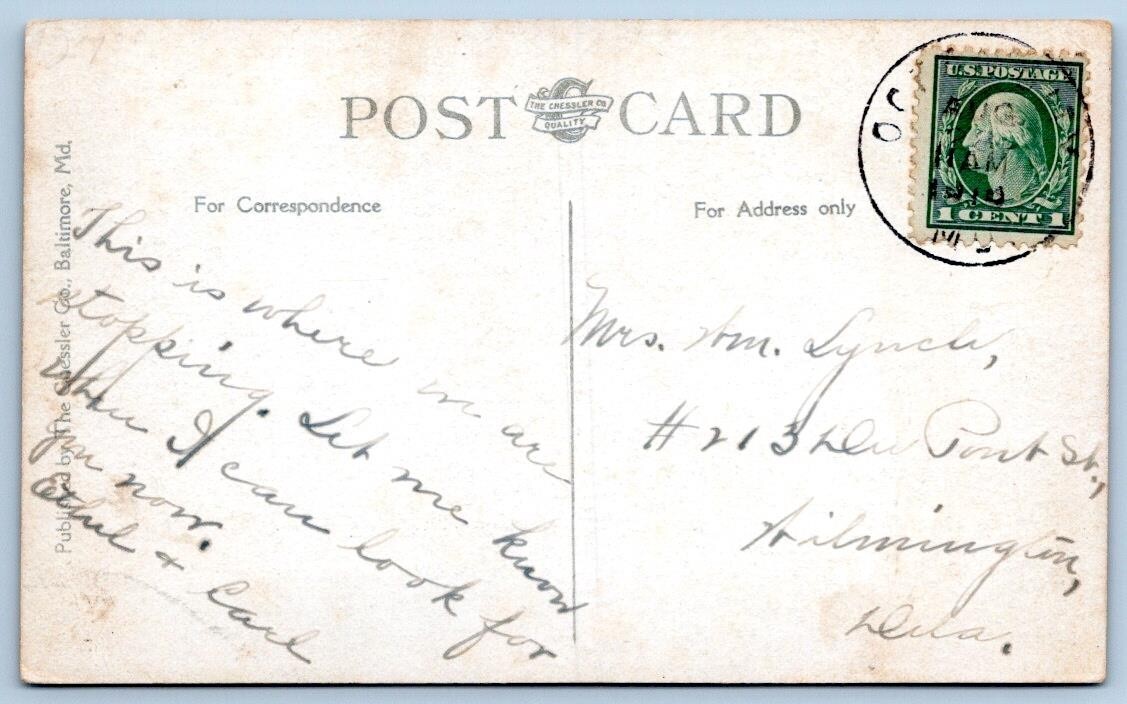 POST CARD
THE CHESSLER CO.
QUALITY
U.S. POSTAGE
1 CENT 1
AUG
AM
For Correspondence
For Address only
Published by The Chessler Co., Baltimore, Md.
This is where we are
stopping. Let me know
when I can look for
you now.
Ethel & Carl
Mrs. Wm. Lynch,
# 213 Du Pont St.,
Wilmington,
Dela.